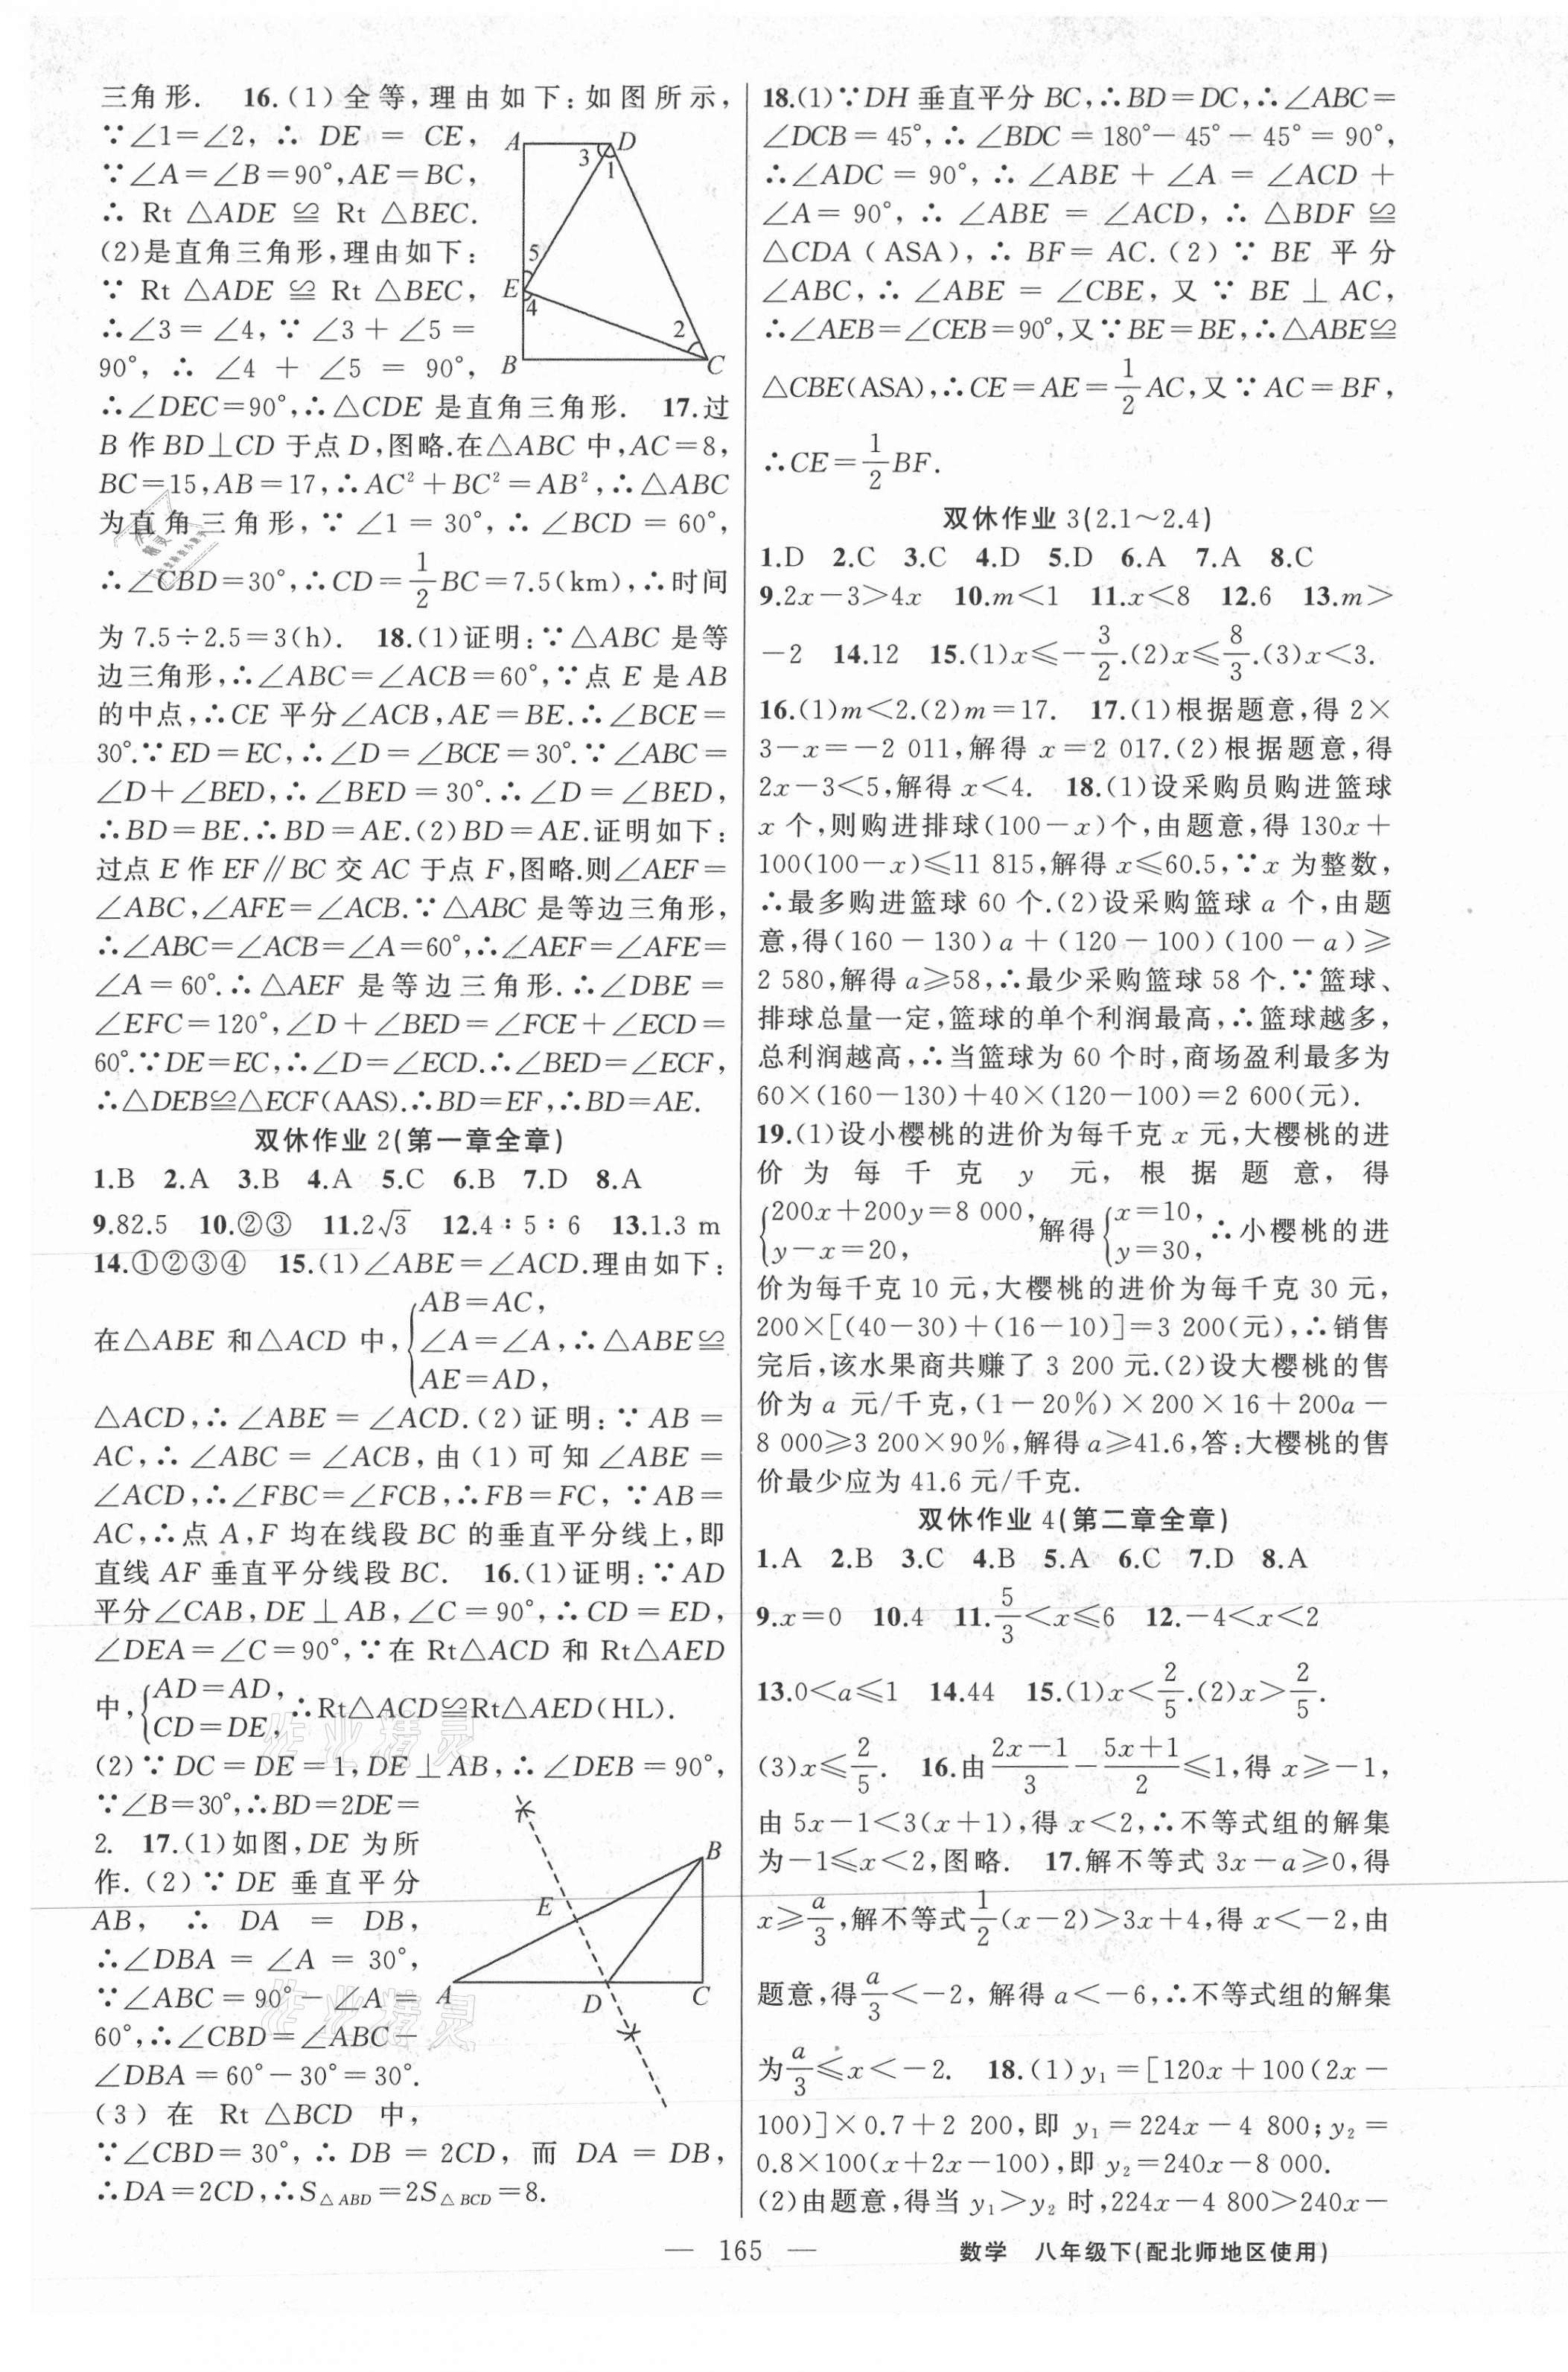 三角形. 16.(1)全等,理由如下:如图所示,
∵∠1=∠2, ∴ DE = CE,
∵∠A=∠B=90°,AE=BC,
∴ Rt △ADE ≌ Rt △BEC.
(2)是直角三角形,理由如下:
∵ Rt △ADE ≌ Rt △BEC,
∴∠3=∠4,∵∠3+∠5=
90°, ∴ ∠4 + ∠5 = 90°,
A D 3 1 5 E 4 2 B C
∴∠DEC=90°,∴△CDE 是直角三角形. 17.过
B 作 BD⊥CD 于点 D,图略.在△ABC 中,AC=8,
BC=15,AB=17,∴AC²+BC²=AB²,∴△ABC
为直角三角形,∵∠1=30°,∴∠BCD=60°,
∴∠CBD=30°,∴CD=1/2BC=7.5(km),∴时间
为 7.5÷2.5=3(h). 18.(1)证明:∵△ABC 是等
边三角形,∴∠ABC=∠ACB=60°,∵点 E 是 AB
的中点,∴CE 平分∠ACB,AE=BE.∴∠BCE=
30°.∵ED=EC,∴∠D=∠BCE=30°.∵∠ABC=
∠D+∠BED,∴∠BED=30°.∴∠D=∠BED,
∴BD=BE.∴BD=AE.(2)BD=AE.证明如下:
过点 E 作 EF∥BC 交 AC 于点 F,图略.则∠AEF=
∠ABC,∠AFE=∠ACB.∵△ABC 是等边三角形,
∴∠ABC=∠ACB=∠A=60°,∴∠AEF=∠AFE=
∠A=60°.∴△AEF 是等边三角形.∴∠DBE=
∠EFC=120°,∠D+∠BED=∠FCE+∠ECD=
60°.∵DE=EC,∴∠D=∠ECD.∴∠BED=∠ECF,
∴△DEB≌△ECF(AAS).∴BD=EF,∴BD=AE.
双休作业 2(第一章全章)
1.B 2.A 3.B 4.A 5.C 6.B 7.D 8.A
9.82.5 10.②③ 11.2√3 12.4∶5∶6 13.1.3 m
14.①②③④ 15.(1)∠ABE=∠ACD.理由如下:
在△ABE 和△ACD 中,{AB=AC, ∠A=∠A, AE=AD, ∴△ABE≌
△ACD,∴∠ABE=∠ACD.(2)证明:∵AB=
AC,∴∠ABC=∠ACB,由(1)可知∠ABE=
∠ACD,∴∠FBC=∠FCB,∴FB=FC,∵AB=
AC,∴点 A,F 均在线段 BC 的垂直平分线上,即
直线 AF 垂直平分线段 BC. 16.(1)证明:∵AD
平分∠CAB,DE⊥AB,∠C=90°,∴CD=ED,
∠DEA=∠C=90°,∵在 Rt△ACD 和 Rt△AED
中,{AD=AD, CD=DE, ∴Rt△ACD≌Rt△AED(HL).
(2)∵DC=DE=1,DE⊥AB,∴∠DEB=90°,
∵∠B=30°,∴BD=2DE=
2. 17.(1)如图,DE 为所
作.(2)∵DE 垂直平分
AB, ∴ DA = DB,
∴∠DBA = ∠A = 30°,
∵∠ABC=90°-∠A=
60°,∴∠CBD=∠ABC-
∠DBA=60°-30°=30°.
(3) 在 Rt △BCD 中,
B E A D C
∵∠CBD=30°,∴DB=2CD,而 DA=DB,
∴DA=2CD,∴S△ABD=2S△BCD=8.
18.(1)∵DH 垂直平分 BC,∴BD=DC,∴∠ABC=
∠DCB=45°,∴∠BDC=180°-45°-45°=90°,
∴∠ADC=90°,∴∠ABE+∠A=∠ACD+
∠A=90°,∴∠ABE=∠ACD,∴△BDF≌
△CDA(ASA),∴BF=AC.(2)∵BE 平分
∠ABC,∴∠ABE=∠CBE,又∵BE⊥AC,
∴∠AEB=∠CEB=90°,又∵BE=BE,∴△ABE≌
△CBE(ASA),∴CE=AE=1/2AC,又∵AC=BF,
∴CE=1/2BF.
双休作业 3(2.1~2.4)
1.D 2.C 3.C 4.D 5.D 6.A 7.A 8.C
9.2x-3>4x 10.m<1 11.x<8 12.6 13.m>
-2 14.12 15.(1)x≤-3/2.(2)x≤8/3.(3)x<3.
16.(1)m<2.(2)m=17. 17.(1)根据题意,得 2×
3-x=-2 011,解得 x=2 017.(2)根据题意,得
2x-3<5,解得 x<4. 18.(1)设采购员购进篮球
x 个,则购进排球(100-x)个,由题意,得 130x+
100(100-x)≤11 815,解得 x≤60.5,∵x 为整数,
∴最多购进篮球 60 个.(2)设采购篮球 a 个,由题
意,得(160-130)a+(120-100)(100-a)≥
2 580,解得 a≥58,∴最少采购篮球 58 个.∵篮球、
排球总量一定,篮球的单个利润最高,∴篮球越多,
总利润越高,∴当篮球为 60 个时,商场盈利最多为
60×(160-130)+40×(120-100)=2 600(元).
19.(1)设小樱桃的进价为每千克 x 元,大樱桃的进
价为每千克 y 元,根据题意,得
{200x+200y=8 000, y-x=20, 解得{x=10, y=30, ∴小樱桃的进
价为每千克 10 元,大樱桃的进价为每千克 30 元,
200×[(40-30)+(16-10)]=3 200(元),∴销售
完后,该水果商共赚了 3 200 元.(2)设大樱桃的售
价为 a 元/千克,(1-20%)×200×16+200a-
8 000≥3 200×90%,解得 a≥41.6,答:大樱桃的售
价最少应为 41.6 元/千克.
双休作业 4(第二章全章)
1.A 2.B 3.C 4.B 5.A 6.C 7.D 8.A
9.x=0 10.4 11.5/3<x≤6 12.-4<x<2
13.0<a≤1 14.44 15.(1)x<2/5.(2)x>2/5.
(3)x≤2/5. 16.由(2x-1)/3-(5x+1)/2≤1,得 x≥-1,
由 5x-1<3(x+1),得 x<2,∴不等式组的解集
为-1≤x<2,图略. 17.解不等式 3x-a≥0,得
x≥a/3,解不等式1/2(x-2)>3x+4,得 x<-2,由
题意,得a/3<-2,解得 a<-6,∴不等式组的解集
为a/3≤x<-2. 18.(1)y₁=[120x+100(2x-
100)]×0.7+2 200,即 y₁=224x-4 800;y₂=
0.8×100(x+2x-100),即 y₂=240x-8 000.
(2)由题意,得当 y₁>y₂ 时,224x-4 800>240x-
— 165 — 数学 八年级下(配北师地区使用)
作业精灵
作业精灵